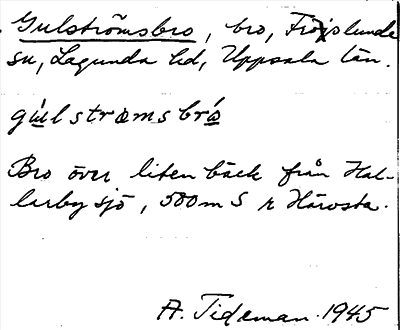 Gulströmsbro, bro, Fröslunda
sn, Lagunda hd, Uppsala län.
Bro över liten bäck från Hal-
larby sjö, 500 m S
A. Tideman. 1945